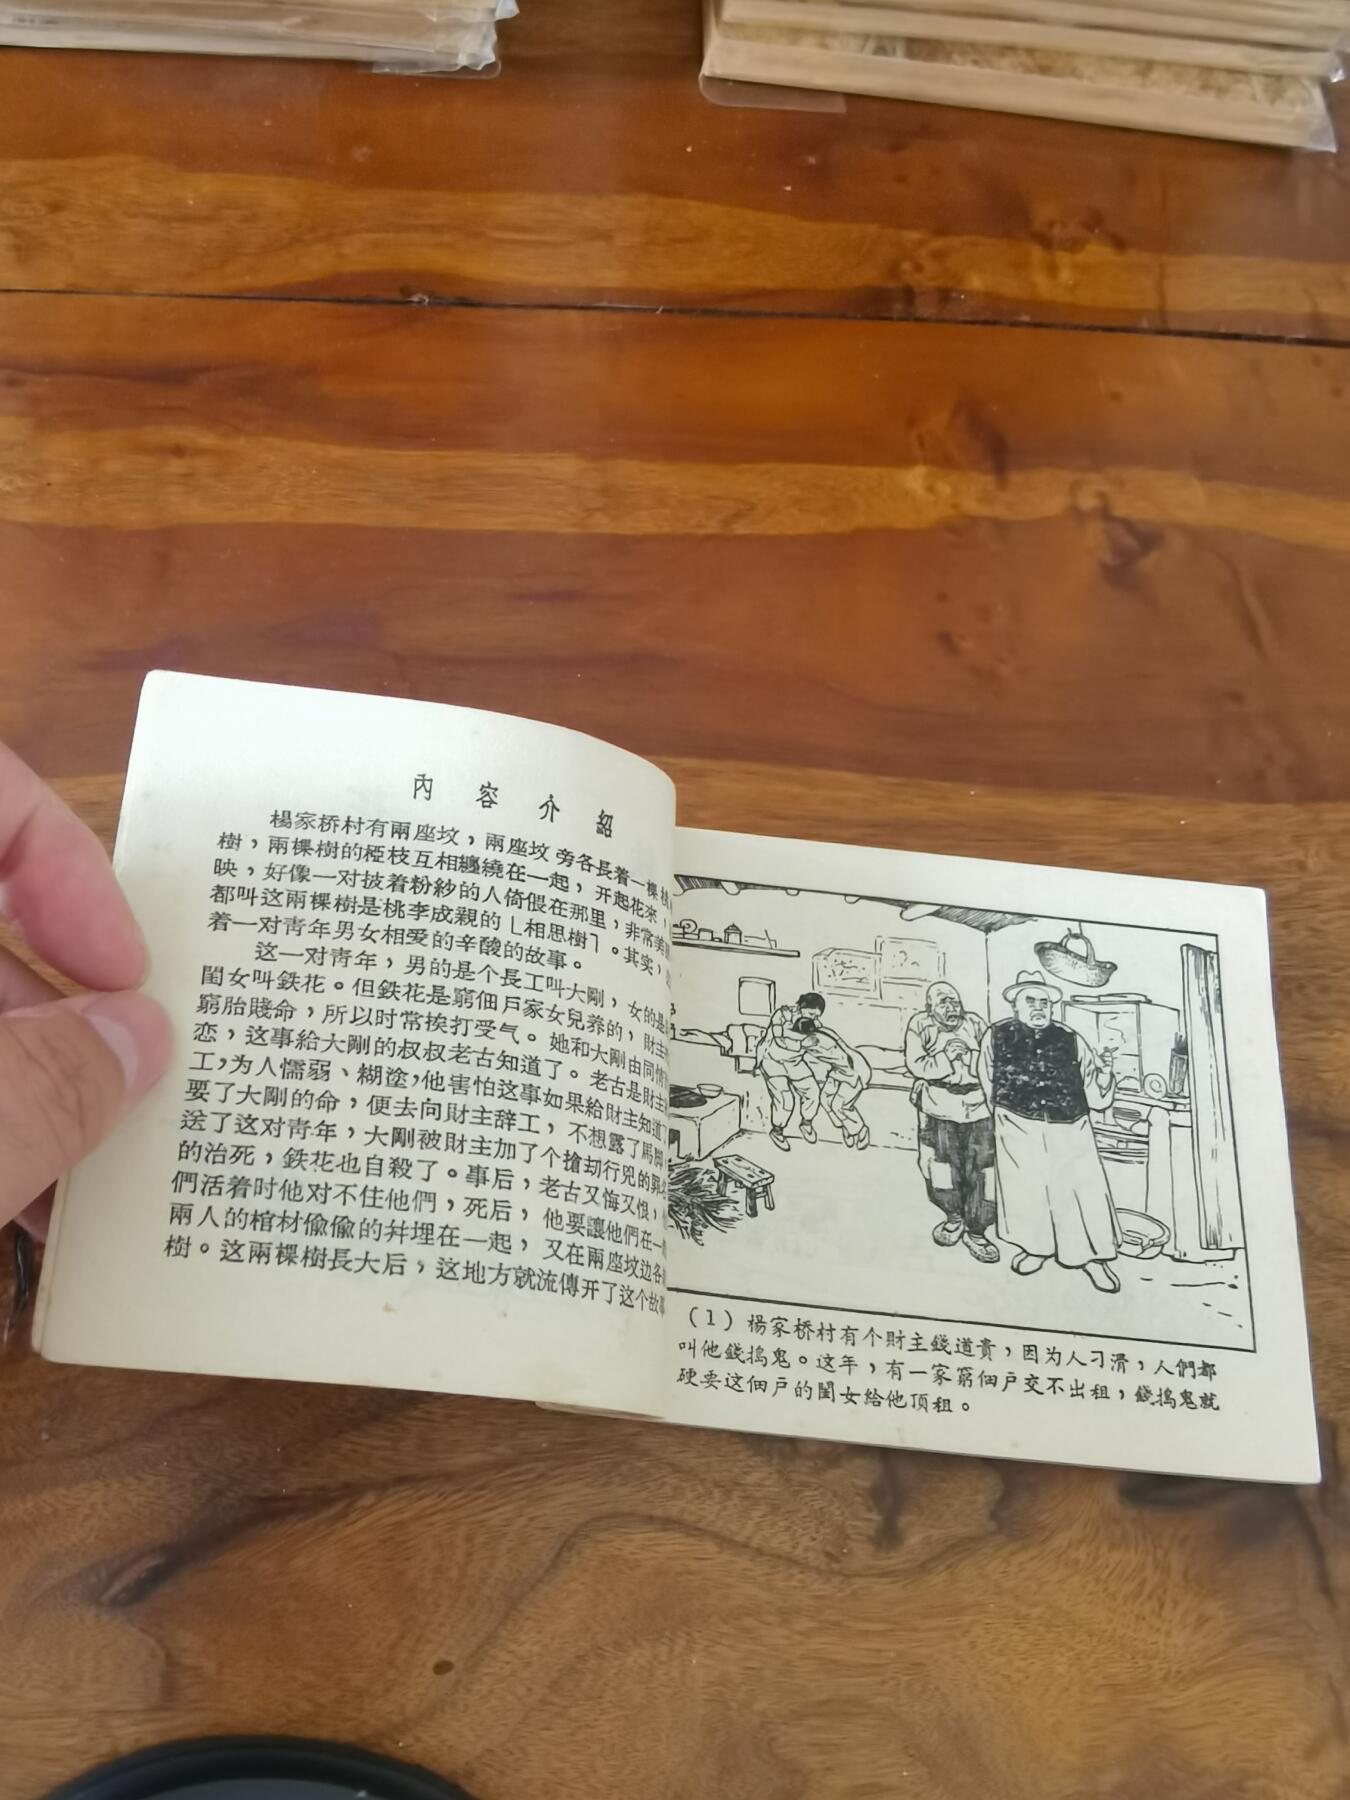 內容介紹
楊家桥村有兩座坟，兩座坟旁各長着一棵
樹，兩棵樹的椏枝互相纏繞在一起，开起花來，
映，好像一对披着粉紗的人倚偎在那里，非常美
都叫这兩棵樹是桃李成親的「相思樹」。其实，
着一对青年男女相爱的辛酸的故事。
这一对青年，男的是个長工叫大剛，女的是
閨女叫鉄花。但鉄花是窮佃戶家女兒养的，財主
窮胎賤命，所以时常挨打受气。她和大剛由同情
恋，这事給大剛的叔叔老古知道了。老古是財主
工，为人懦弱、糊塗，他害怕这事如果給財主知道
要了大剛的命，便去向財主辞工，不想露了馬脚
送了这对青年，大剛被財主加了个搶刧行兇的罪
的治死，鉄花也自殺了。事后，老古又悔又恨，
們活着时他对不住他們，死后，他要讓他們在一
兩人的棺材偸偸的幷埋在一起，又在兩座坟边各
樹。这兩棵樹長大后，这地方就流傳开了这个故
(1) 楊家桥村有个財主錢道貴，因为人刁滑，人們都
叫他錢搗鬼。这年，有一家窮佃戶交不出租，錢搗鬼就
硬要这佃戶的閨女給他頂租。